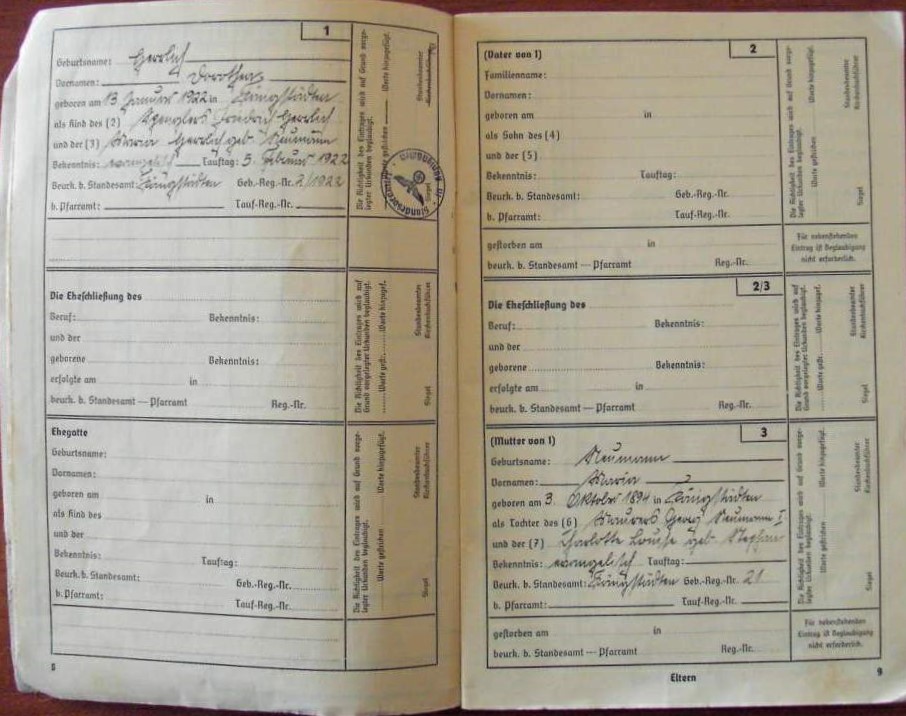 1
Geburtsname: Gerrlich
Vornamen: Dorothea
geboren am 13 Januar 1922 in Königstädten
als Kind des (2) Spenglers Friedrich Gerrlich
und der (3) Maria Gerrlich geb. Neumann
Bekenntnis: evangelisch Tauftag: 5. Februar 1922
Beurk. b. Standesamt: Königstädten Geb.-Reg.-Nr. 2/1922
b. Pfarramt: Tauf-Reg.-Nr.
Die Richtigkeit des Eintrages wird auf Grund vorge-
legter Urkunden beglaubigt.
Worte hinzugefügt.
Worte gestrichen
Standesbeamter
Kirchenbuchführer
Siegel
Die Eheschließung des
Beruf: Bekenntnis:
und der
geborene Bekenntnis:
erfolgte am in
beurk. b. Standesamt — Pfarramt Reg.-Nr.
Die Richtigkeit des Eintrages wird auf
Grund vorgelegter Urkunden beglaubigt.
Worte hinzugef.
Worte gestr.
Standesbeamter
Kirchenbuchführer
Siegel
Ehegatte
Geburtsname:
Vornamen:
geboren am in
als Kind des
und der
Bekenntnis: Tauftag:
Beurk. b. Standesamt: Geb.-Reg.-Nr.
b. Pfarramt: Tauf-Reg.-Nr.
Die Richtigkeit des Eintrages wird auf Grund vorge-
legter Urkunden beglaubigt.
Worte hinzugefügt.
Worte gestrichen
Standesbeamter
Kirchenbuchführer
Siegel
8
(Vater von 1) 2
Familienname:
Vornamen:
geboren am in
als Sohn des (4)
und der (5)
Bekenntnis: Tauftag:
Beurk. b. Standesamt: Geb.-Reg.-Nr.
b. Pfarramt: Tauf-Reg.-Nr.
Die Richtigkeit des Eintrages wird auf Grund vorge-
legter Urkunden beglaubigt.
Worte hinzugefügt.
Worte gestrichen
Standesbeamter
Kirchenbuchführer
Siegel
gestorben am in
beurk. b. Standesamt — Pfarramt Reg.-Nr.
Für nebenstehenden
Eintrag ist Beglaubigung
nicht erforderlich.
2/3
Die Eheschließung des
Beruf: Bekenntnis:
und der
geborene Bekenntnis:
erfolgte am in
beurk. b. Standesamt — Pfarramt Reg.-Nr.
Die Richtigkeit des Eintrages wird auf
Grund vorgelegter Urkunden beglaubigt.
Worte hinzugef.
Worte gestr.
Standesbeamter
Kirchenbuchführer
Siegel
(Mutter von 1) 3
Geburtsname: Neumann
Vornamen: Maria
geboren am 3. Oktober 1894 in Königstädten
als Tochter des (6) Maurers Georg Neumann I
und der (7) Charlotte Louise geb. Stephan
Bekenntnis: evangelisch Tauftag:
Beurk. b. Standesamt: Königstädten Geb.-Reg.-Nr. 21
b. Pfarramt: Tauf-Reg.-Nr.
Die Richtigkeit des Eintrages wird auf Grund vorge-
legter Urkunden beglaubigt.
Worte hinzugefügt.
Worte gestrichen
Standesbeamter
Kirchenbuchführer
Siegel
gestorben am in
beurk. b. Standesamt — Pfarramt Reg.-Nr.
Für nebenstehenden
Eintrag ist Beglaubigung
nicht erforderlich.
Eltern
9